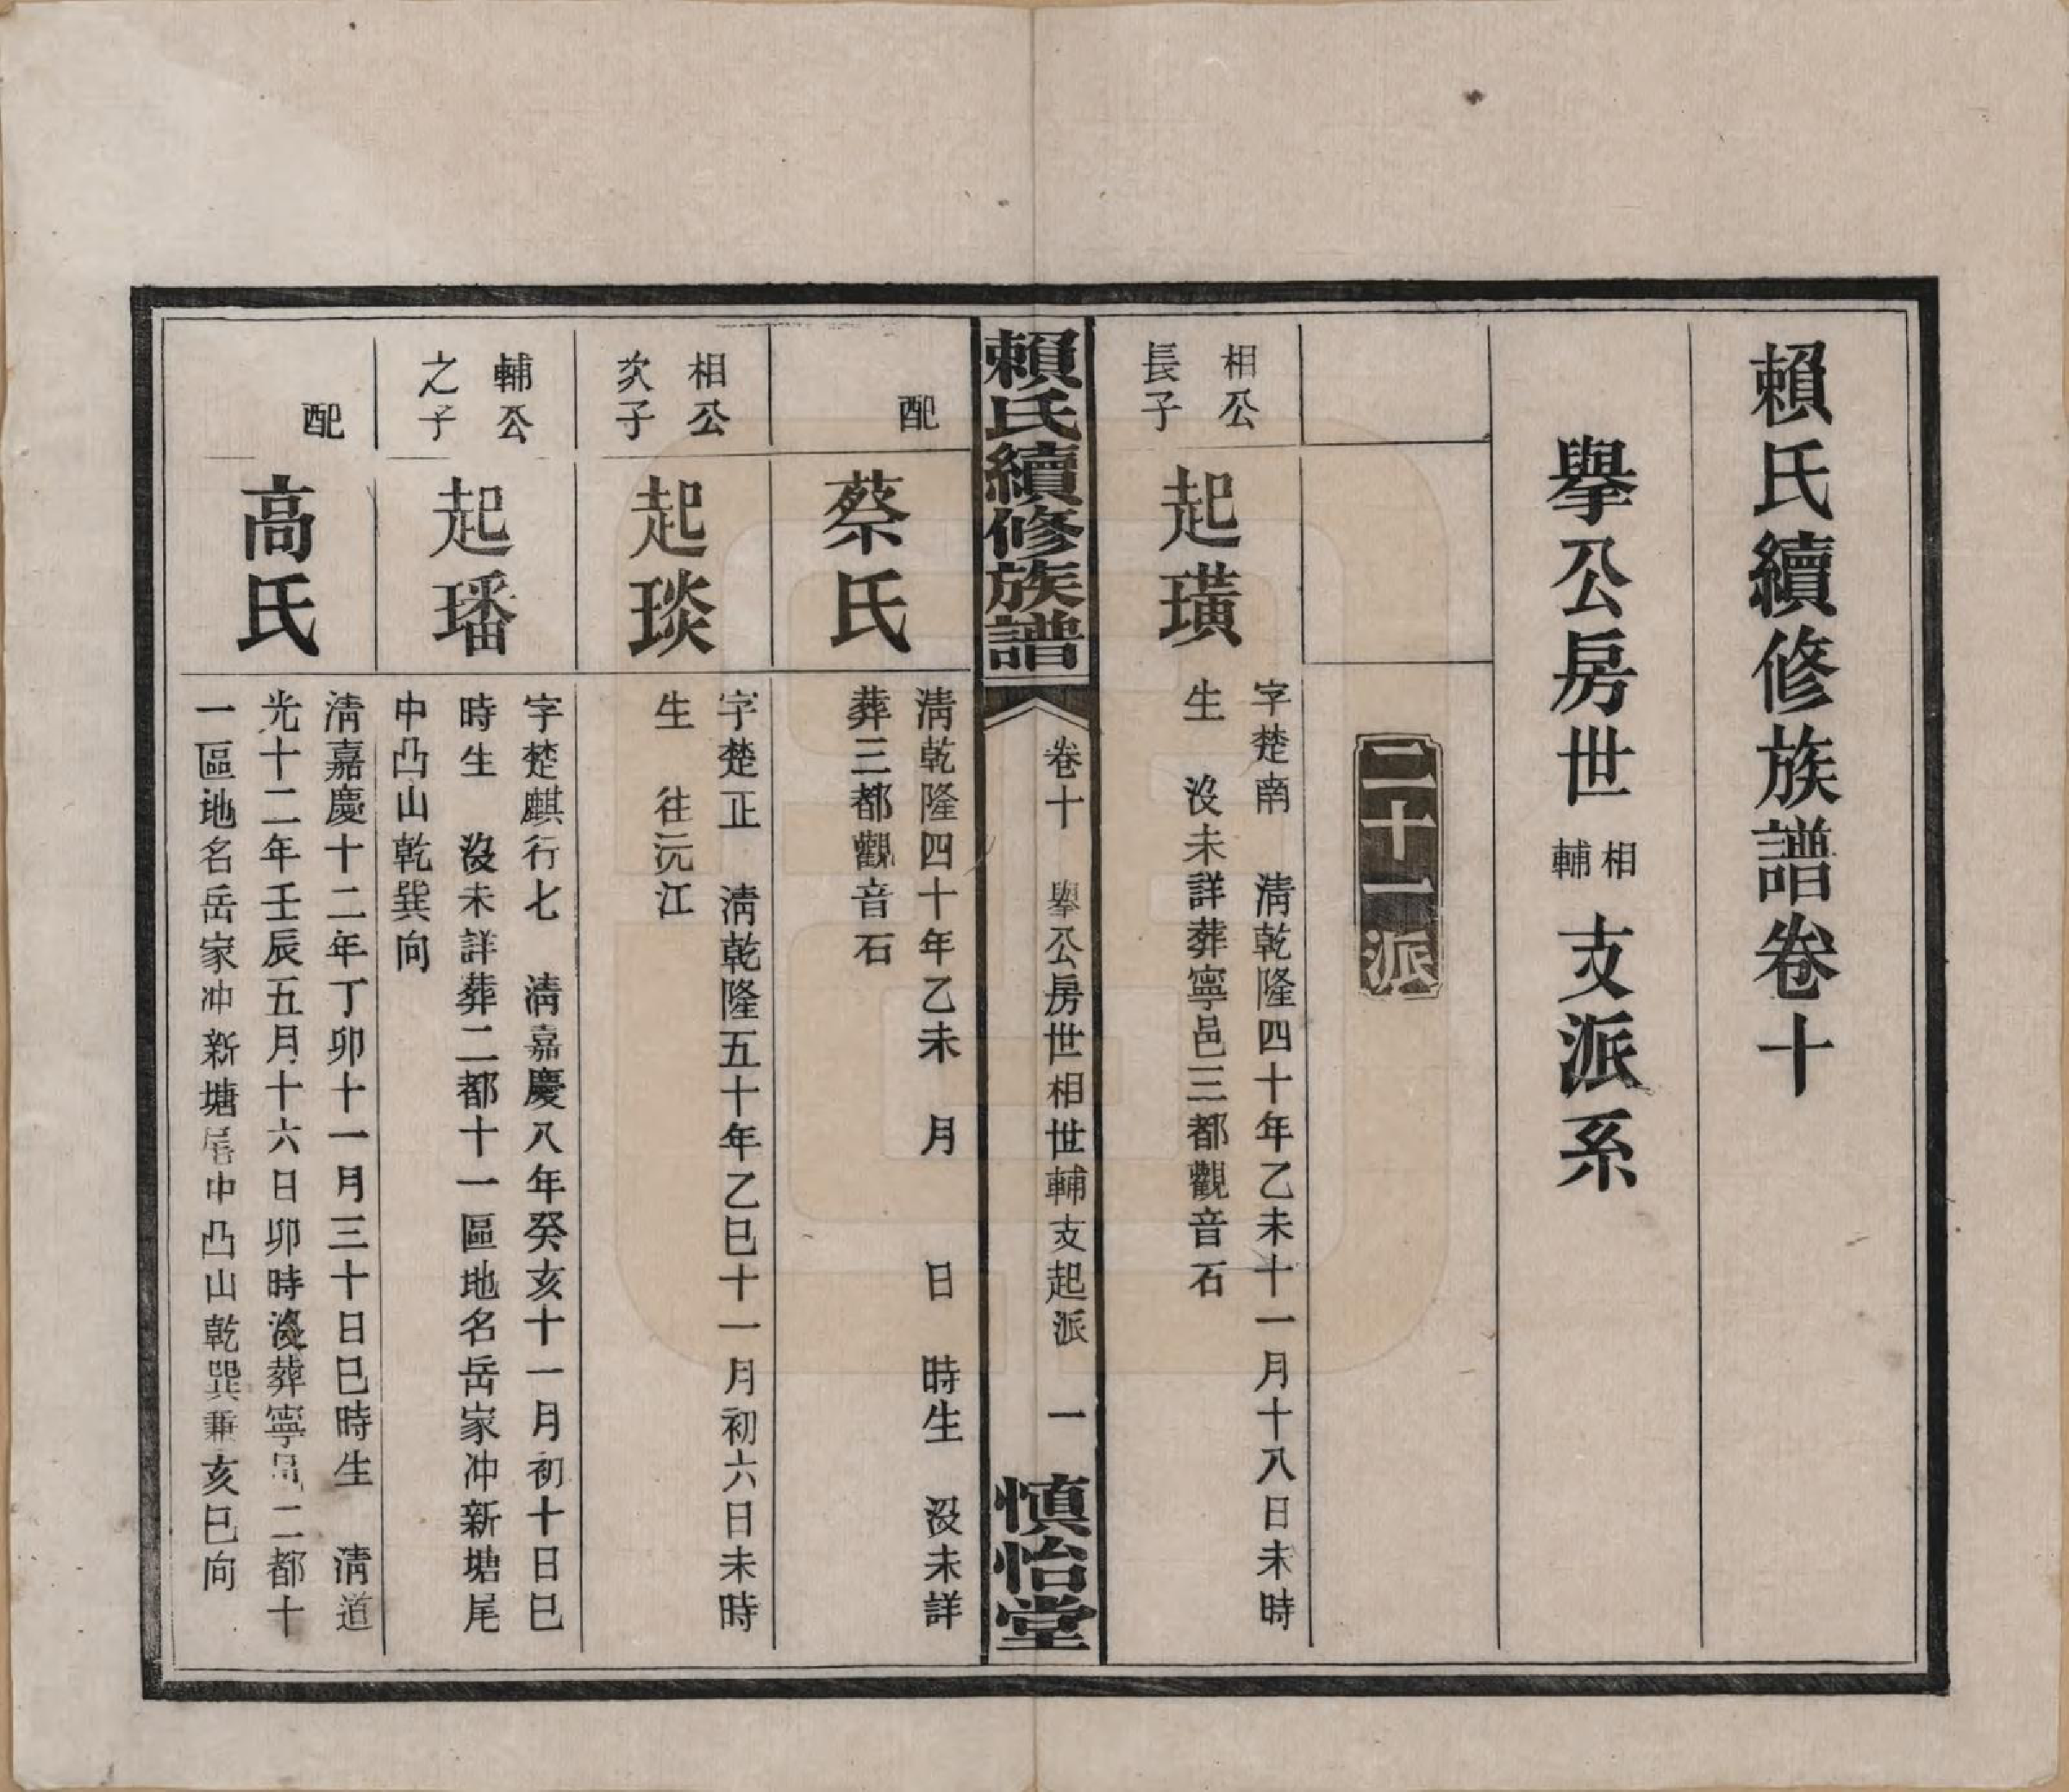 賴氏續修族譜卷十
擧公房世相輔支派系
二十一派
相公
長子
起璜
字楚南 淸乾隆四十年乙未十一月十八日未時
生 沒未詳葬寧邑三都觀音石
賴氏續修族譜
卷十 擧公房世相世輔支起派 一
慎怡堂
配
蔡氏
淸乾隆四十年乙未 月 日 時生 沒未詳
葬三都觀音石
相公
次子
起琰
字楚正 淸乾隆五十年乙巳十一月初六日未時
生 往沅江
輔公
之子
起璠
字楚麒行七 淸嘉慶八年癸亥十一月初十日巳
時生 沒未詳葬二都十一區地名岳家冲新塘尾
中凸山乾巽向
配
高氏
淸嘉慶十二年丁卯十一月三十日巳時生 淸道
光十二年壬辰五月十六日卯時沒葬寧邑二都十
一區地名岳家冲新塘尾中凸山乾巽兼亥巳向